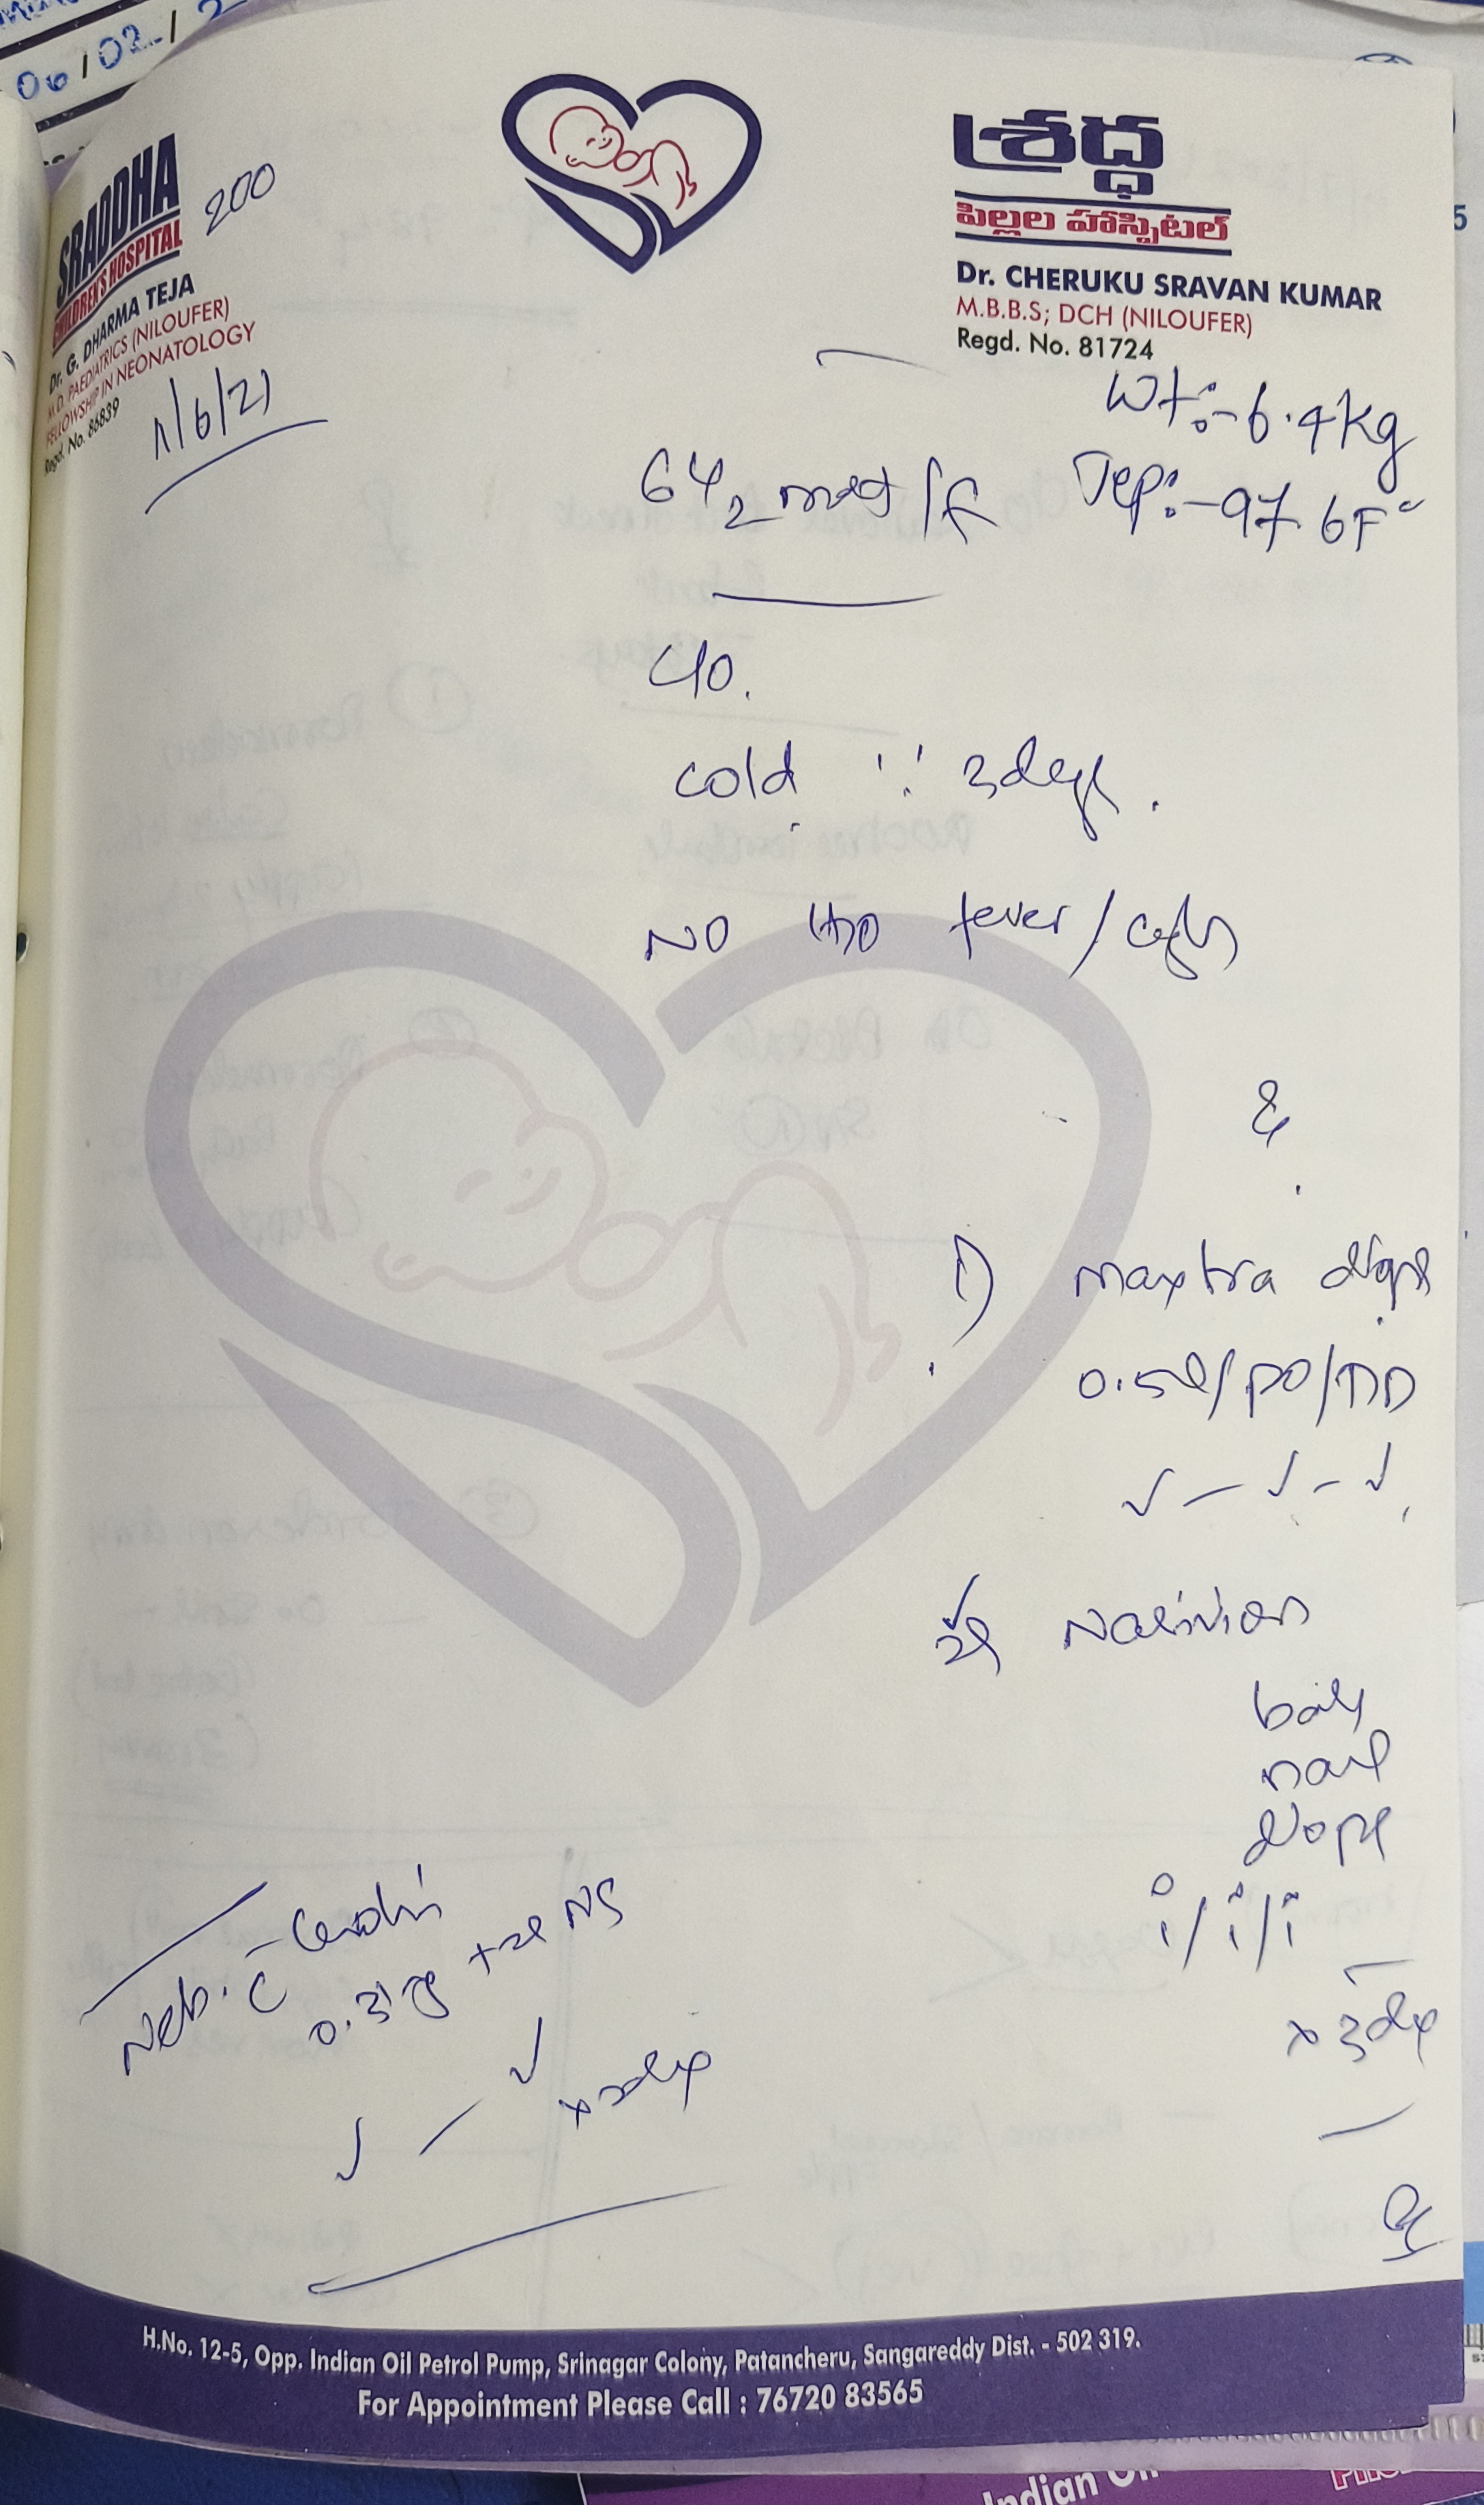 06/02/2
SRADDHA
CHILDREN'S HOSPITAL
Dr. G. DHARMA TEJA
M.D. PAEDIATRICS (NILOUFER)
FELLOWSHIP IN NEONATOLOGY
Regd. No. 86839
200
శ్రద్ధ
పిల్లల హాస్పిటల్
Dr. CHERUKU SRAVAN KUMAR
M.B.B.S; DCH (NILOUFER)
Regd. No. 81724
/6/21
Wt:-6.4kg
Tep:-97.6F°
C/o.
cold ∵ 3days.
NO H/O fever/
1) maxtra drops
0.5 /PO/TID
✓ - ✓ - ✓
2) Nasivion
baby
nasal
drops
i/i/i
x 3days
Neb. c̄
0.31mg + NS
✓ - ✓
H.No. 12-5, Opp. Indian Oil Petrol Pump, Srinagar Colony, Patancheru, Sangareddy Dist. - 502 319.
For Appointment Please Call : 76720 83565
Indian